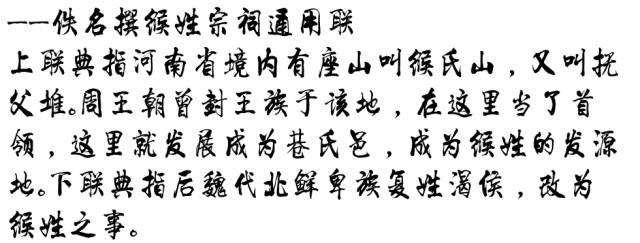 ——佚名撰缑姓宗祠通用联
上联典指河南省境内有座山叫缑氏山，又叫抚
父堆。周王朝曾封王族于该地，在这里当了首
领，这里就发展成为巷氏邑，成为缑姓的发源
地。下联典指后魏代北鲜卑族复姓渴侯，改为
缑姓之事。